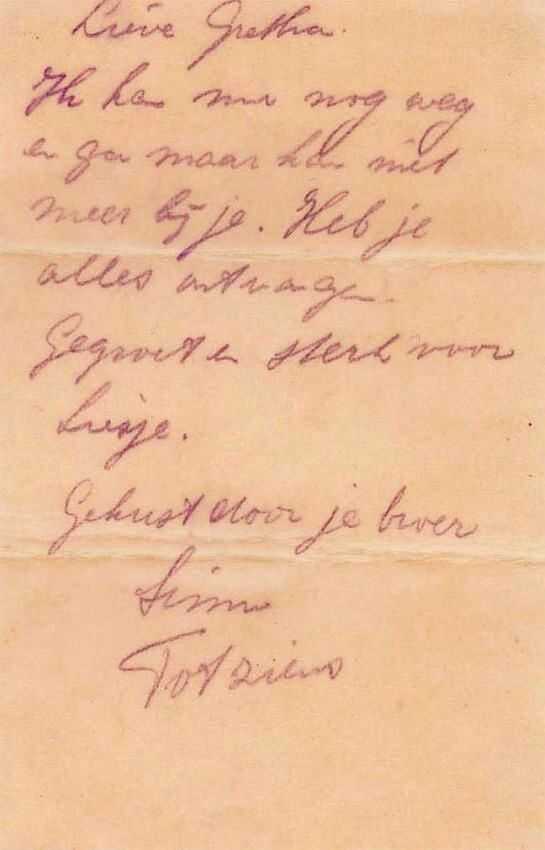 Lieve Gretha.
Ik kan nu nog weg
en ga maar kan niet
meer bij je. Heb je
alles ontvangen.
Gegroet en sterk voor
Liesje.
Gekust door je broer
Simon
Tot ziens